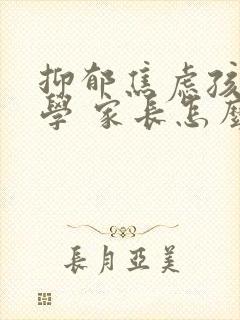 抑郁焦虑孩
學 家長怎麼
長月亞美